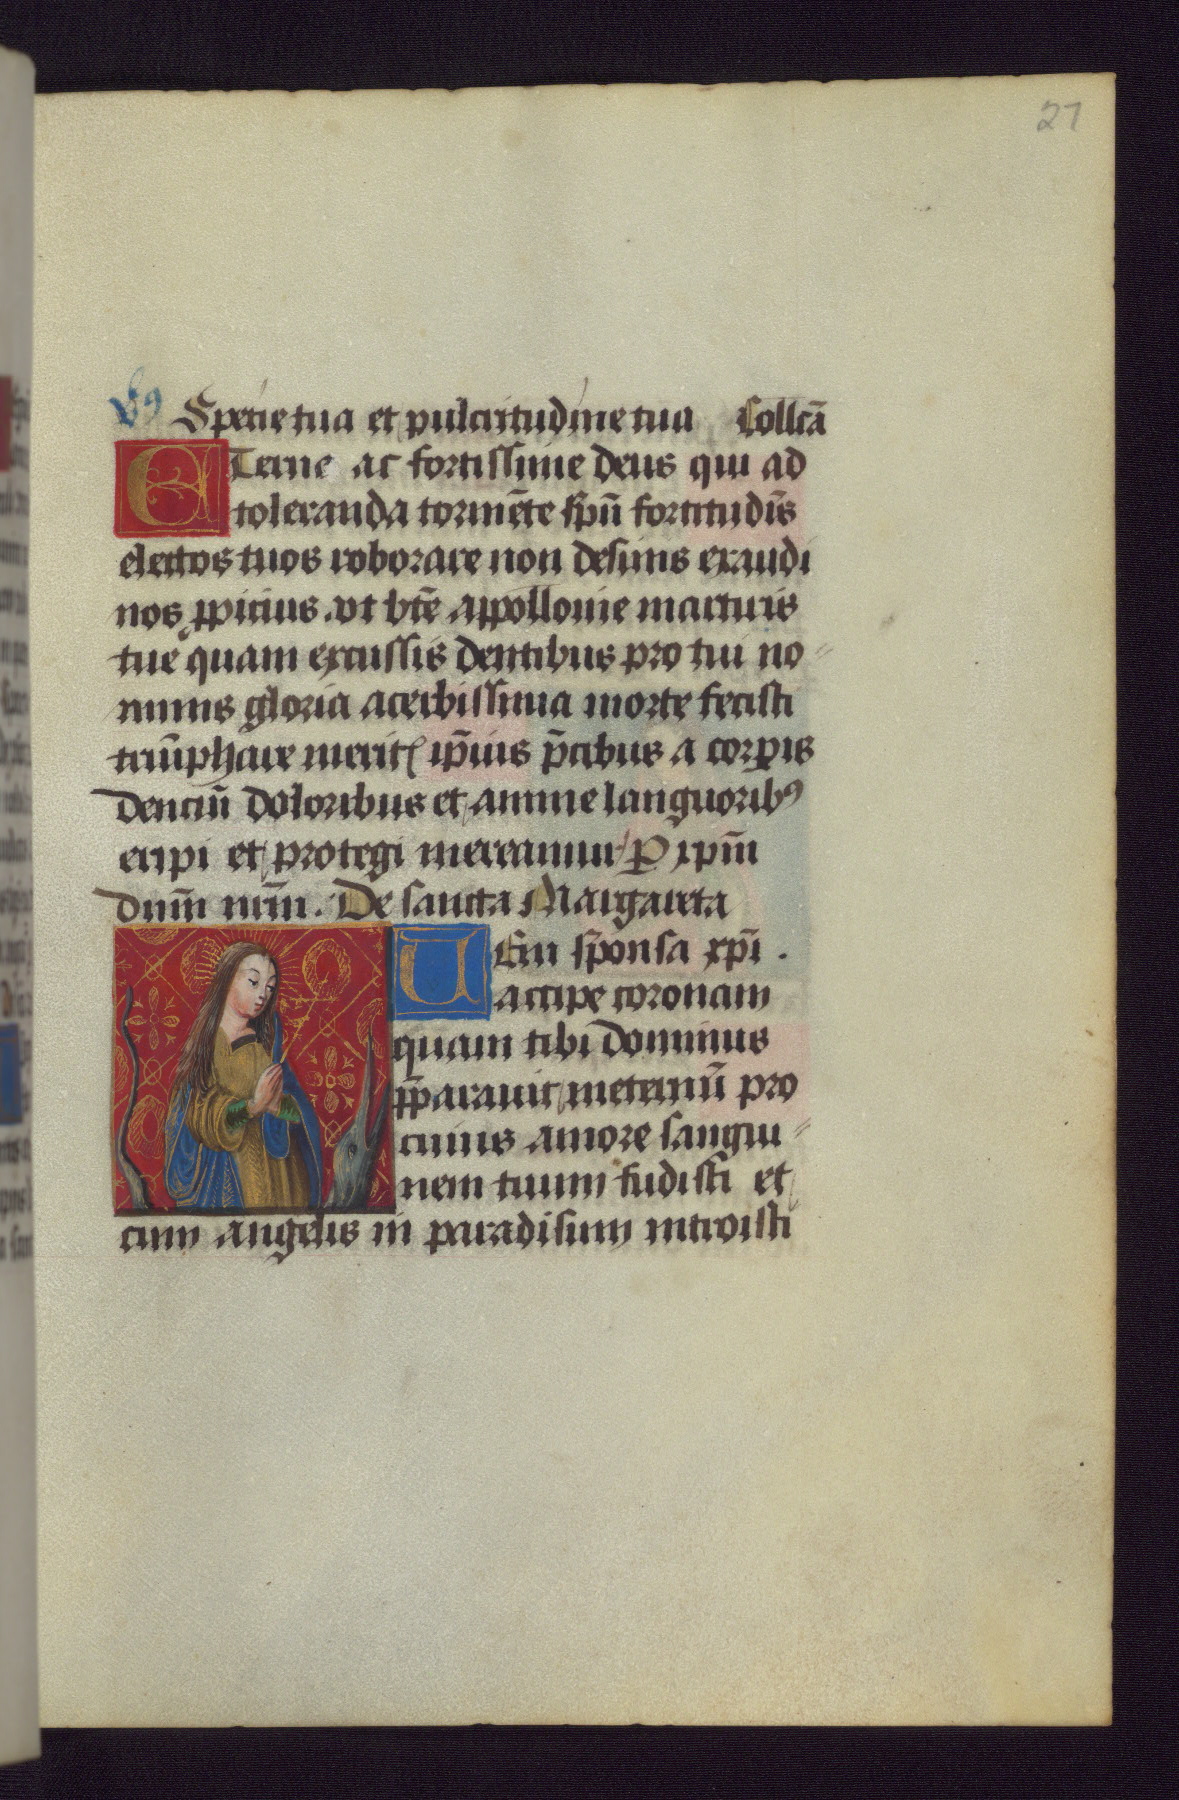 27
V9 Specie tua et pulcritudine tua Collcā
ETerne ac fortissime deus qui ad
toleranda tormēte spū fortitudīs
electos tuos roborare non desinis exaudi
nos ꝓpicius. vt btē appollonie marturis
tue quam excussis dentibus pro tui no=
minis gloria acerbissima morte fecisti
triūphare merit ip̄ius p̄cibus a corꝑis
denciū doloribus et anime languoribꝰ
eripi et protegi mereamur ꝑ xp̄m
dnm̄ nrm̄. De sancta Margareta
UEni sponsa xpī.
accipe coronam
quam tibi dominus
p̄parauit ineternū pro
cuius amore sangui=
nem tuum fudisti et
cum angelis in paradisum introisti